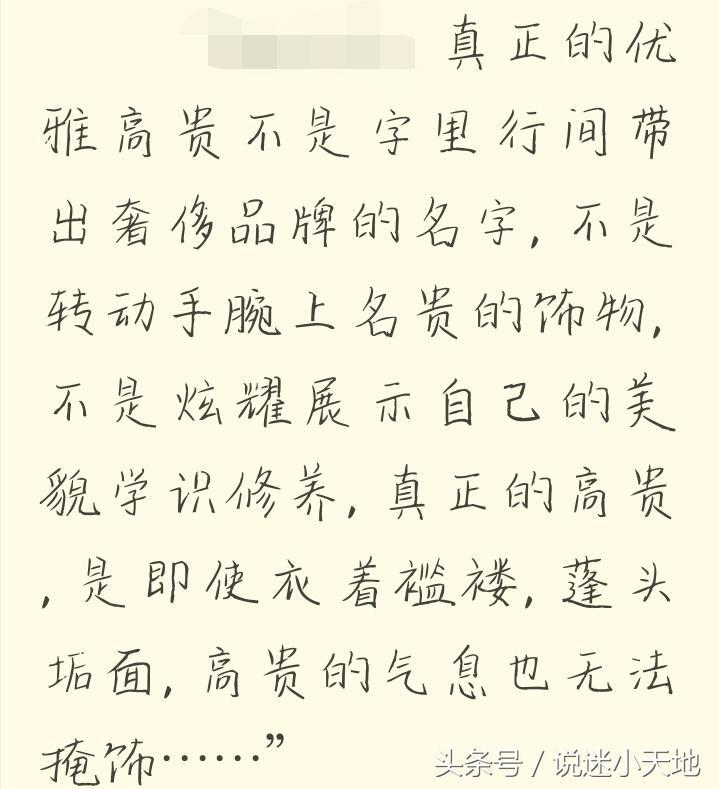 真正的优
雅高贵不是字里行间带
出奢侈品牌的名字,不是
转动手腕上名贵的饰物,
不是炫耀展示自己的美
貌学识修养,真正的高贵
,是即使衣着褴褛,蓬头
垢面,高贵的气息也无法
掩饰……”
头条号 / 说迷小天地